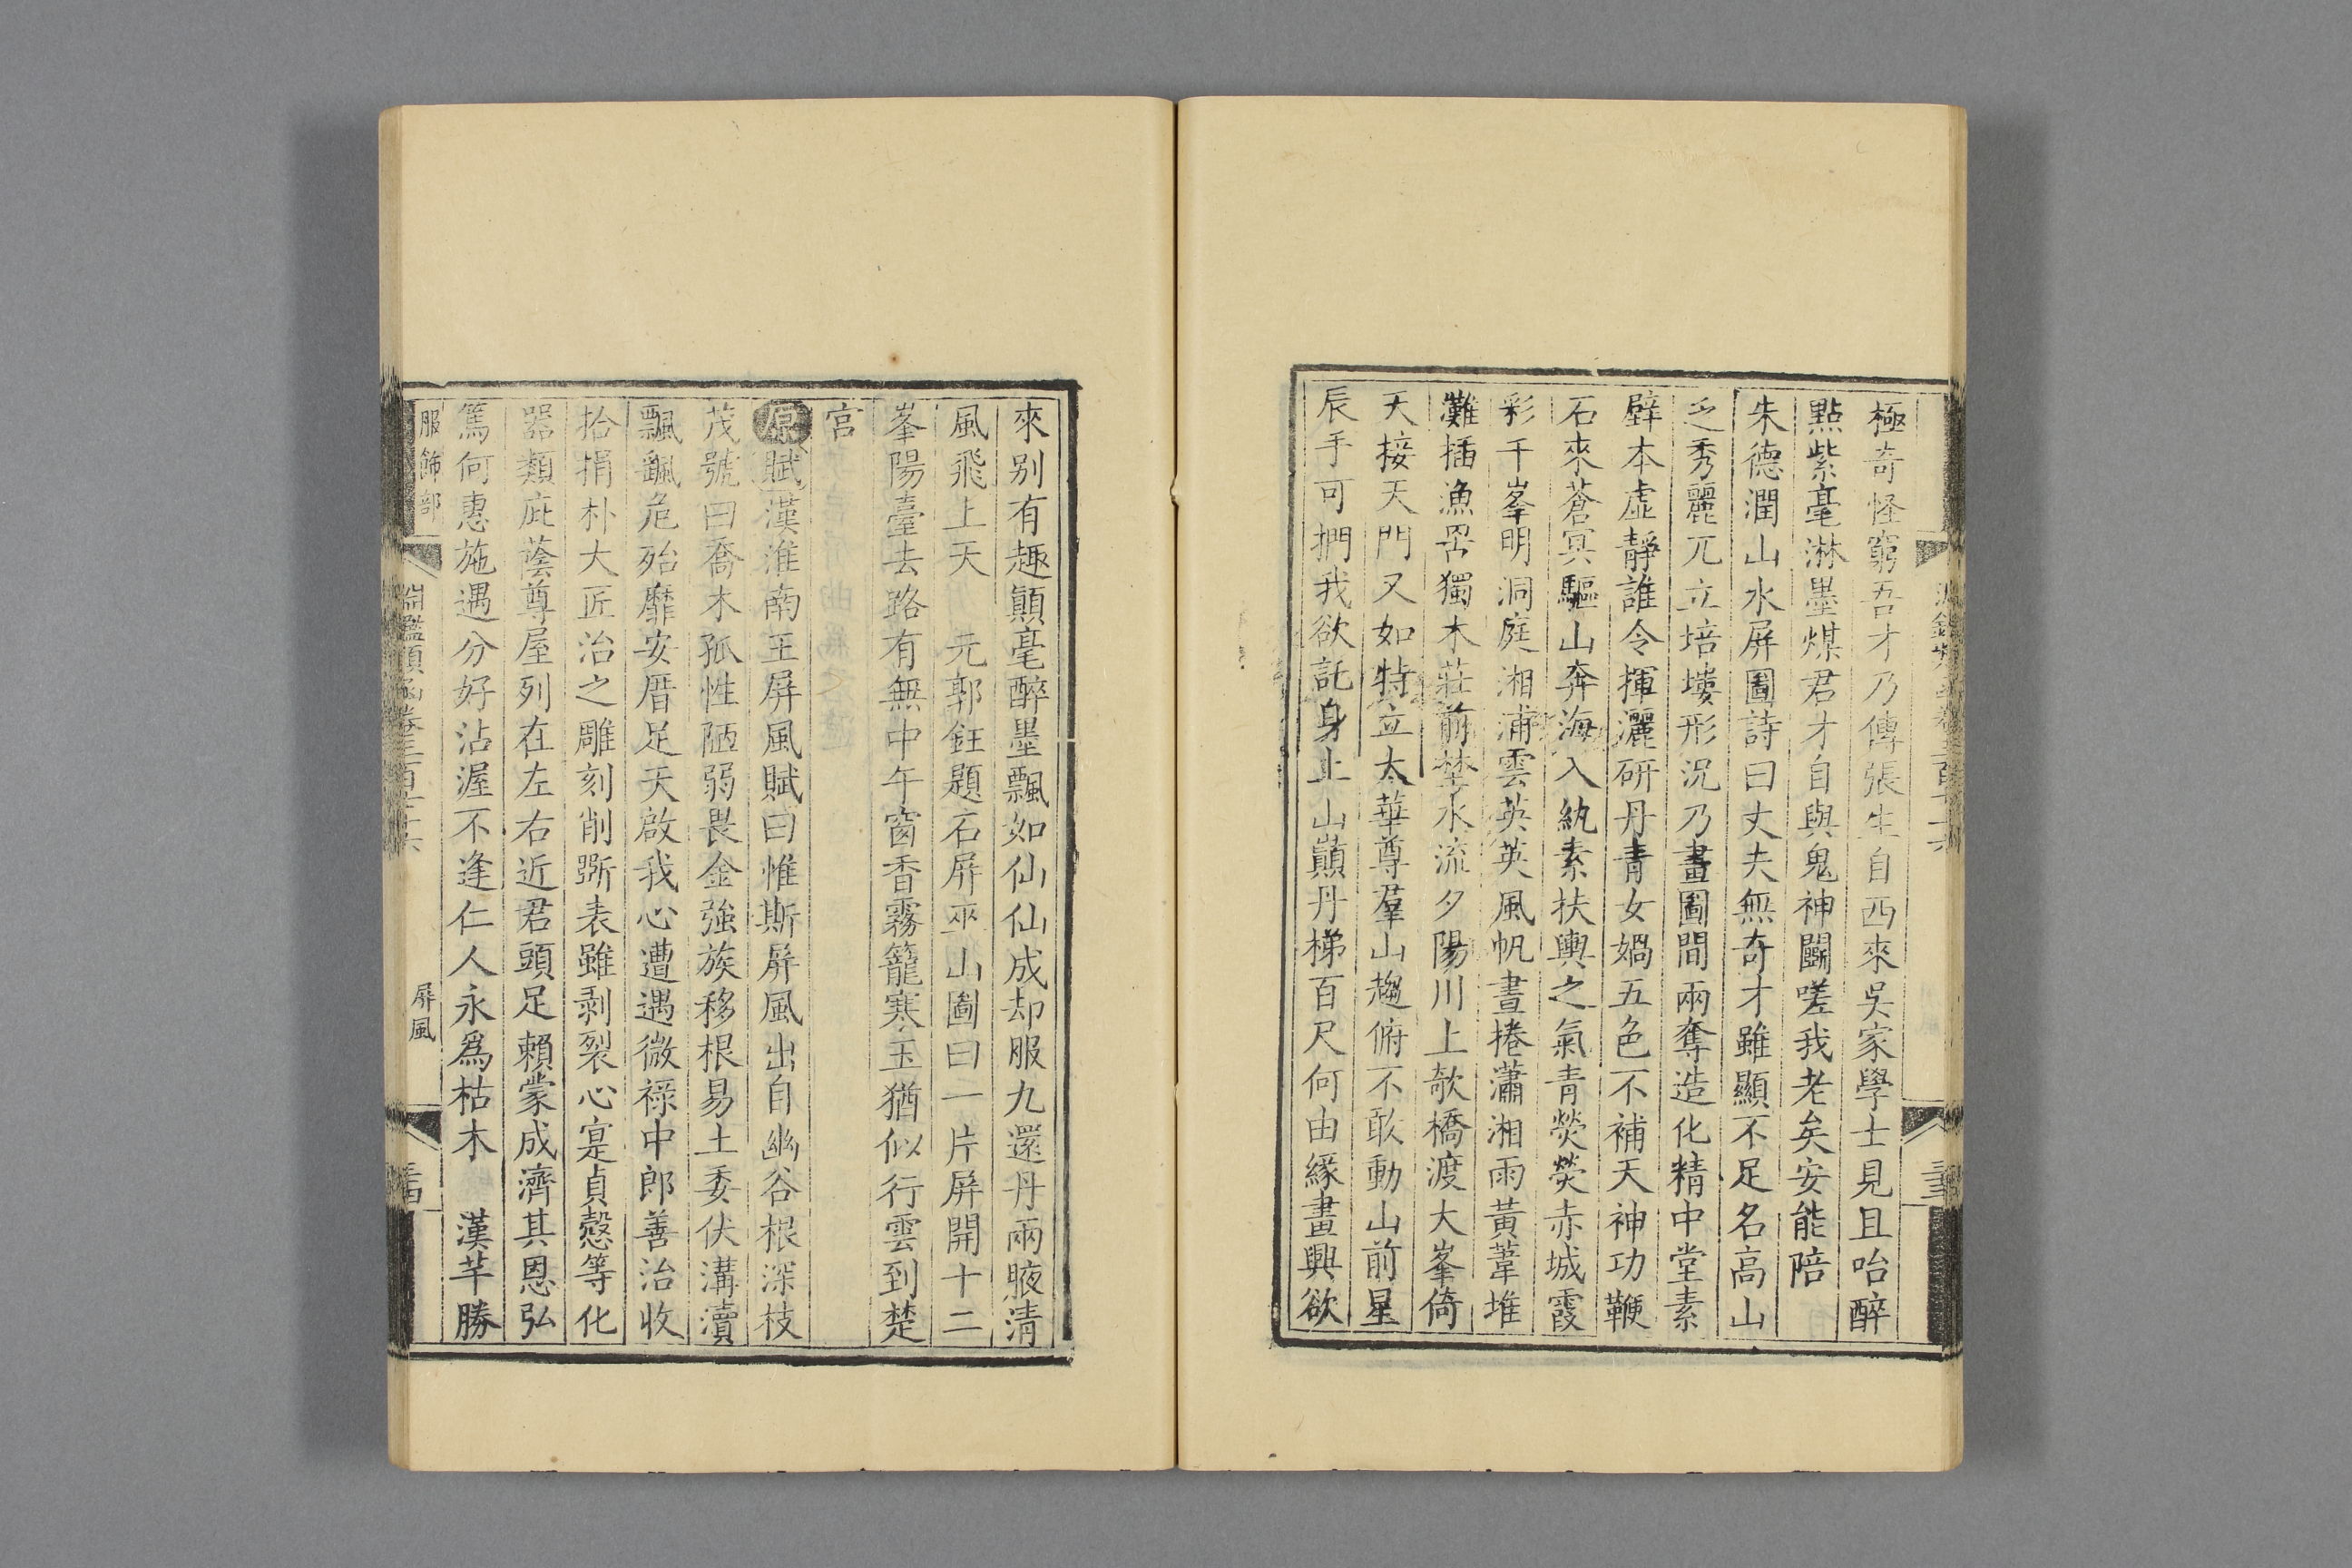 極奇怪窮吾才乃傳張生自西來吳家學士見且咍醉
點紫毫淋墨煤君才自與鬼神鬭嗟我老矣安能陪
朱德潤山水屏圖詩曰丈夫無奇才雖顯不足名高山
乏秀麗兀立培塿形況乃畫圖間兩奪造化精中堂素
壁本虛靜誰令揮灑硏丹青女媧五色不補天神功鞭
石來蒼冥驅山奔海入紈素扶輿之氣青熒熒赤城霞
彩千峯明洞庭湘浦雲英英風帆晝捲瀟湘雨黃葦堆
灘插漁罾獨木莊前埜水流夕陽川上欹橋渡大峯倚
天接天門又如特立太華尊羣山趨俯不敢動山前星
辰手可捫我欲託身止山巔丹梯百尺何由緣畫興欲
來別有趣顛毫醉墨飄如仙仙成却服九還丹兩腋清
風飛上天 元郭鈺題石屏巫山圖曰一片屏開十二
峯陽臺去路有無中午窗香霧籠寒玉猶似行雲到楚
宮
原賦漢淮南王屏風賦曰惟斯屏風出自幽谷根深枝
茂號曰喬木孤性陋弱畏金強族移根易土委伏溝瀆
飄颻危殆靡安厝足天啟我心遭遇微祿中郎善治收
拾捐朴大匠治之雕刻削斲表雖剥裂心寔貞愨等化
器類庇蔭尊屋列在左右近君頭足賴蒙成濟其恩弘
篤何惠施遇分好沾渥不逢仁人永爲枯木 漢羊勝
服飾部
淵鑑類函卷三百七十六
屏風